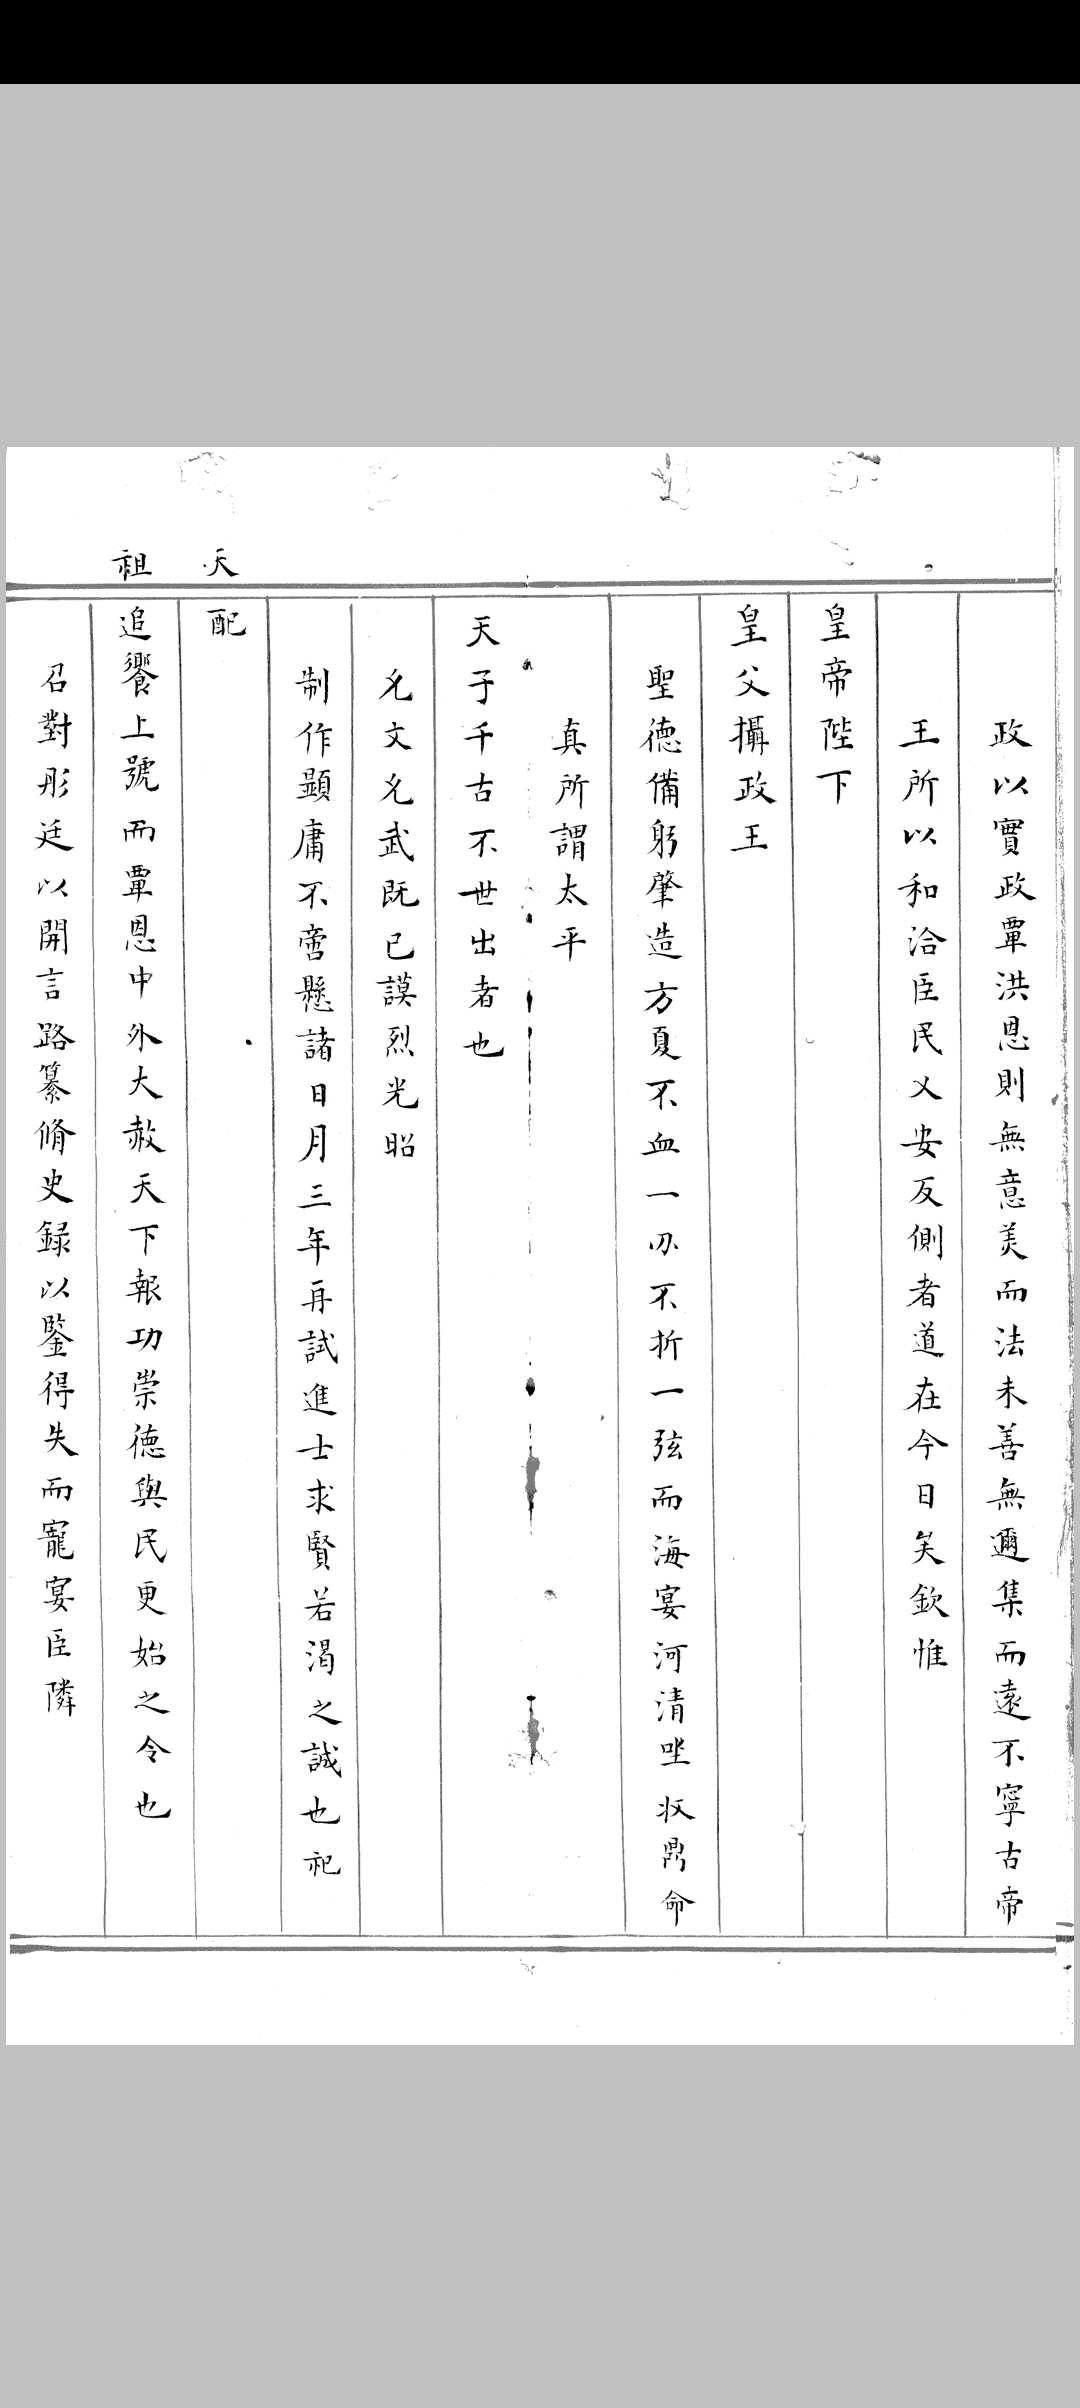 政以實政覃洪恩則無意美而法未善無邇集而遠不寧古帝
王所以和洽臣民乂安反側者道在今日矣欽惟
皇帝陛下
皇父攝政王
聖德備躬肇造方夏不血一刃不折一弦而海宴河清坐収鼎命
真所謂太平
天子千古不世出者也
允文允武既已謨烈光昭
制作顯庸不啻懸諸日月三年再試進士求賢若渴之誠也祀
天配
祖追饗上號而覃恩中外大赦天下報功崇德與民更始之令也
召對彤廷以開言路纂脩史録以鑒得失而寵宴臣隣